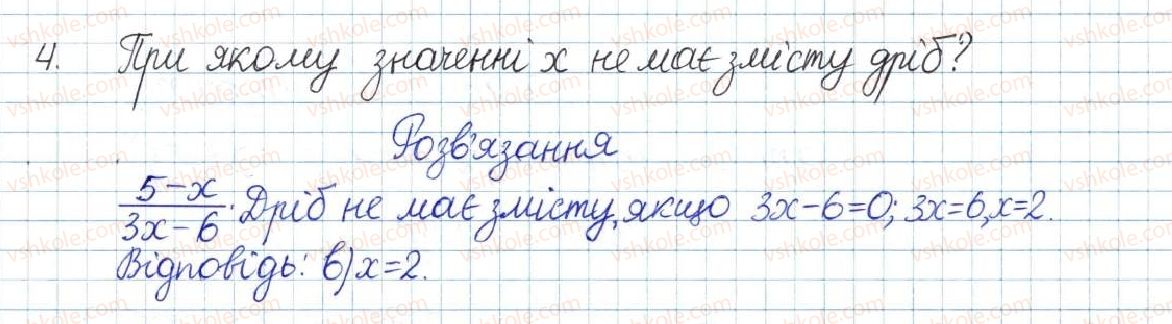 4. При якому значенні x не має змісту дріб?
Розв'язання
5-x/3x-6. Дріб не має змісту, якщо 3x-6=0; 3x=6, x=2.
Відповідь: в) x=2.